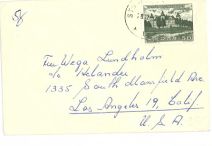 Fru Wega Lundholm
c/o Helander
1335 South Dlamfield Ave
Los Angeles 19, Calif.
U.S.A